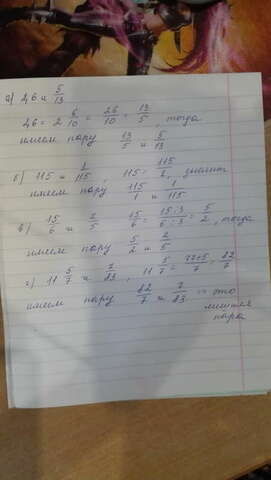 а) 2,6 и 5/13
2,6 = 2 6/10 = 26/10 = 13/5, тогда
имеем пару 13/5 и 5/13
б) 115 и 1/115, 115 = 115/1, значит
имеем пару 115/1 и 1/115
в) 15/6 и 2/5 15/6 = 15:3/6:3 = 5/2, тогда
имеем пару 5/2 и 2/5
г) 11 5/7 и 7/83, 11 5/7 = 77+5/7 = 82/7
имеем пару 82/7 и 7/83 - это
лишняя
пара